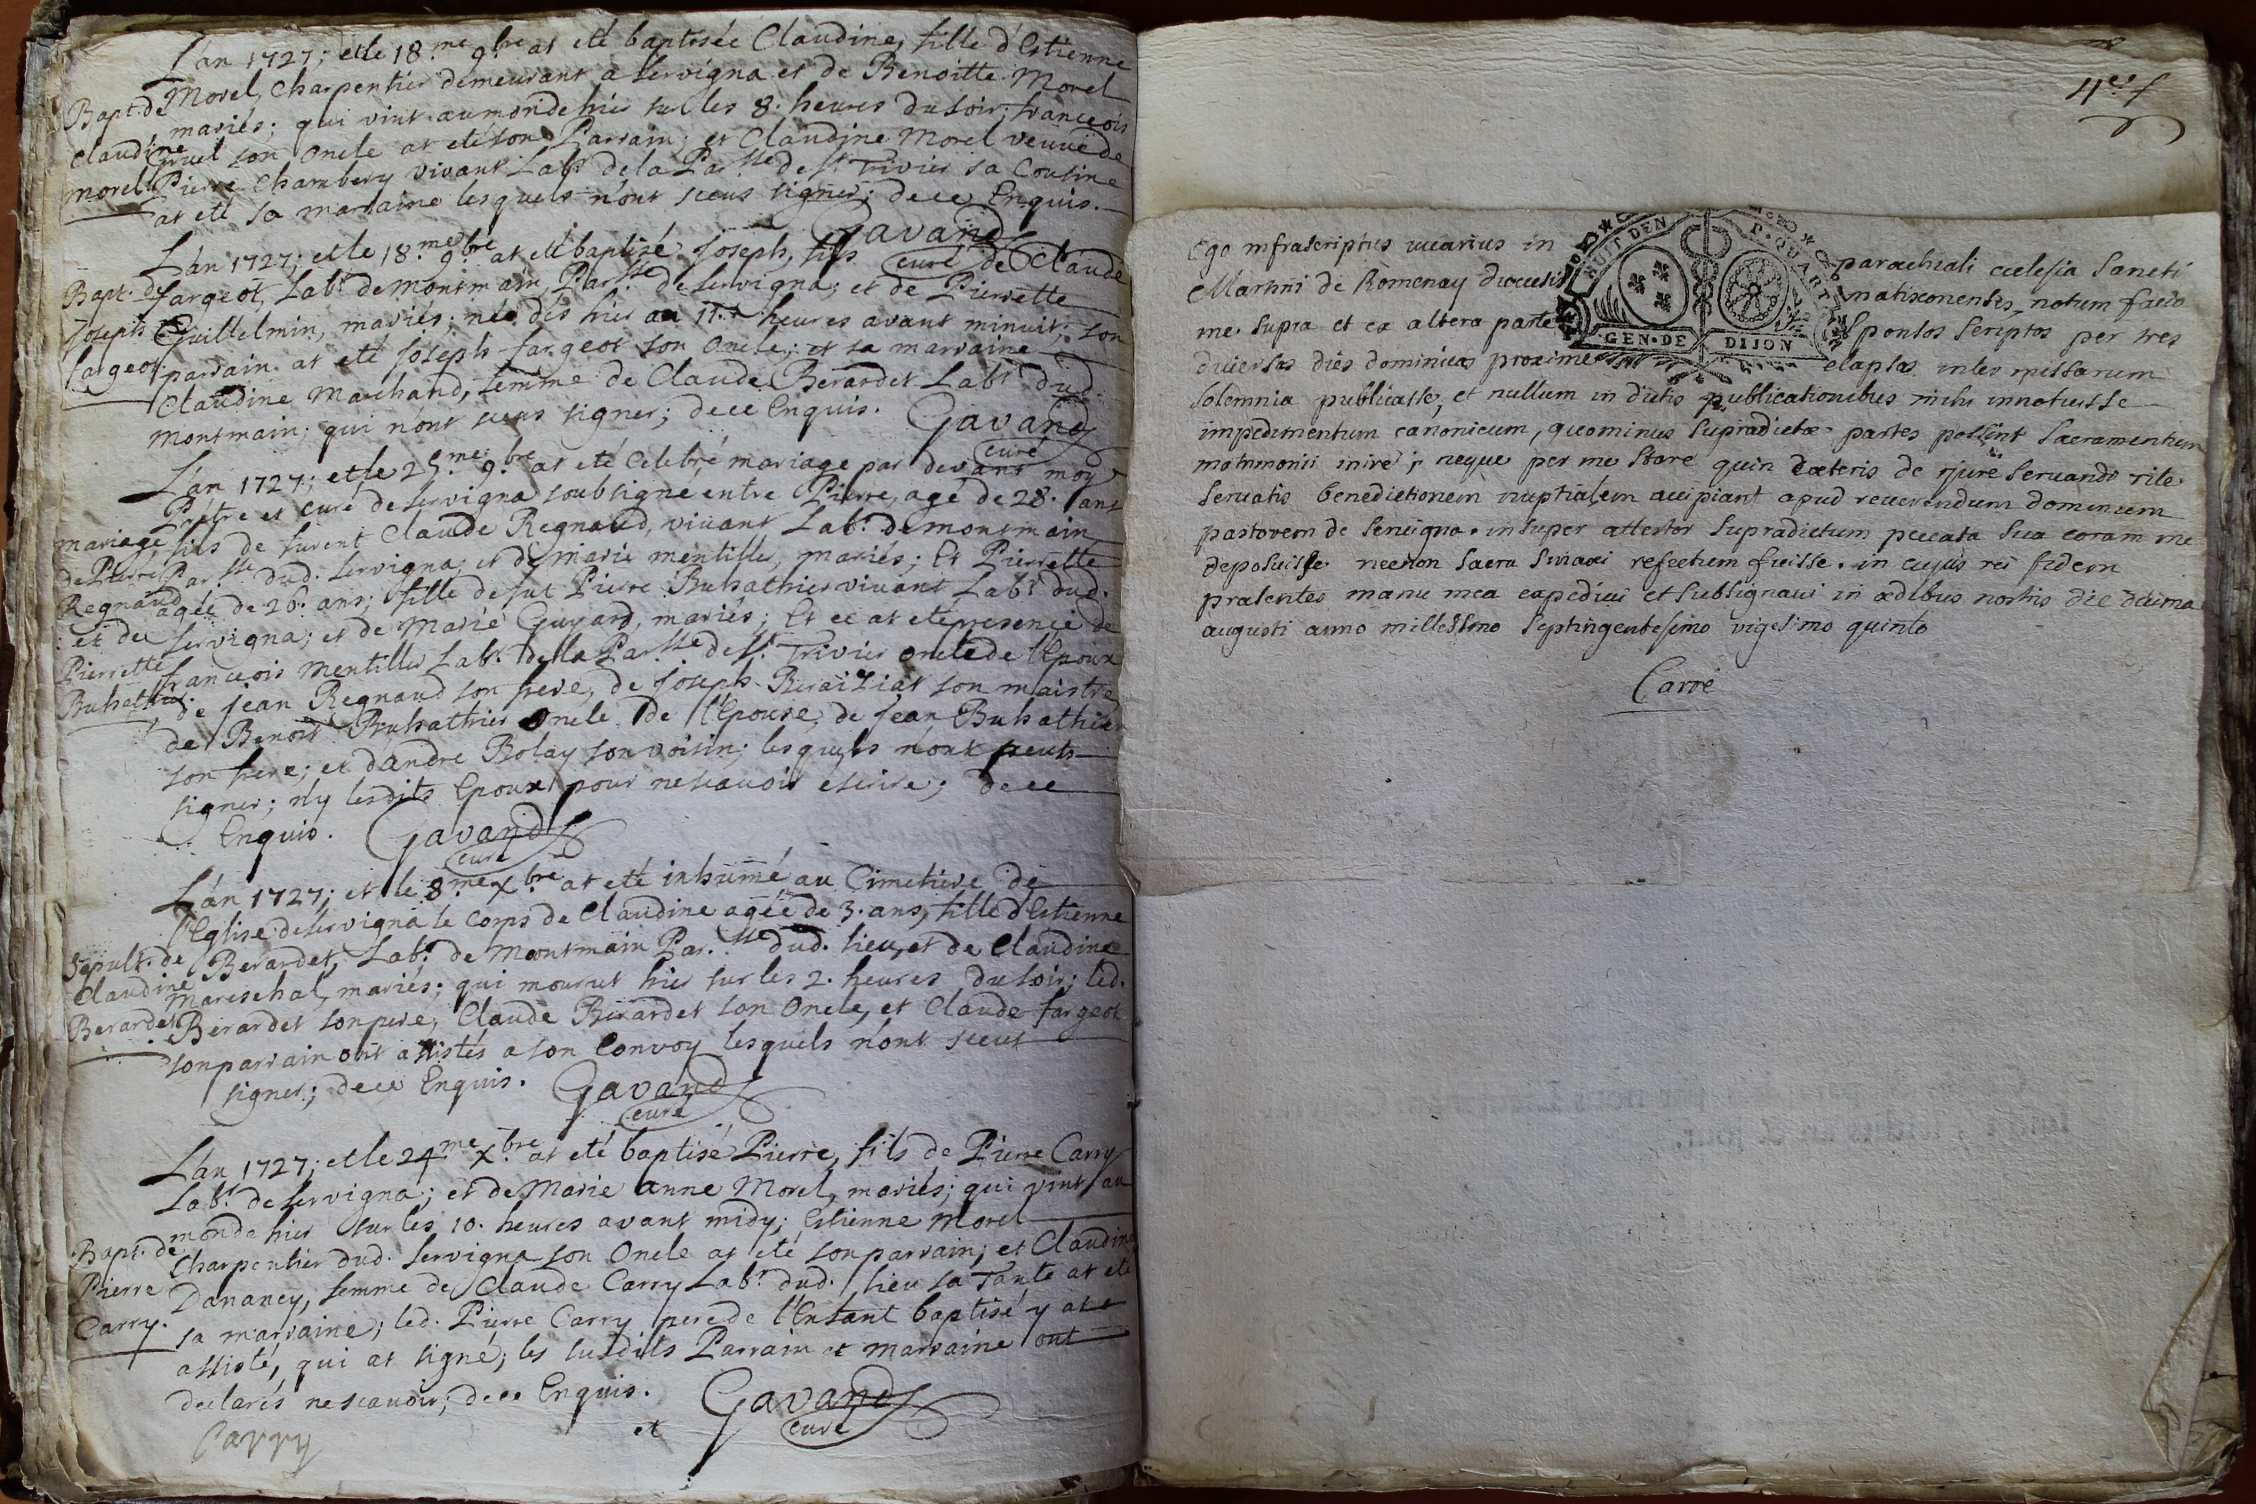 L'an 1727; et le 18.me 9.bre at eté baptisée Claudine, fille d'Estienne
Morel, Charpentier demeurant a Servigna et de Benoitte Morel
mariés; qui vint au monde hier sur les 8. heures du soir; françois
son Oncle at eté son Parrain; et Claudine Morel veuve de
Pierre Chambery vivant Lab.r de la Par.sse de s.t Trivier sa Cousine
at eté sa marraine lesquels n'ont sceus signer; de ce Enquis.
Bapt. de
Claudine
Morel
Gavand
curé
L'an 1727; et le 18.me 9.bre at eté baptisé Joseph, fils de Claude
fargeot, Lab.r de montmain Par.sse de Servigna; et de Pierrette
Guillelmin, mariés; née dés hier au 11.e heures avant minuit; son
parrain at eté Joseph fargeot son Oncle; et sa marraine
Claudine Marchand, femme de Claude Berardet Lab.r dud.
montmain; qui n'ont sceus signer; de ce Enquis.
Bapt. de
Joseph
fargeot
Gavand
curé
L'an 1727; et le 25.me 9.bre at eté Celebré mariage par devant moy
Prêtre et curé de Servigna soubsigné entre Pierre, agé de 28. ans
fils de furent Claude Regnaud, vivant Lab.r de montmain
Par.sse dud. Servigna; et de marie mentillier, mariés; Et Pierrette
agée de 26. ans; fille de fut Pierre Buhathier vivant Lab.r dud.
Servigna; et de Marie Guyard, mariés; Et ce at eté presence de
françois Mentillier Lab.r de la Par.sse de s.t Trivier oncle de l'Epoux
de jean Regnaud son frere, de Joseph Beraiziat son maistre
de Benoit Buhathier Oncle de l'Epouse, de Jean Buhathier
son frere; et d'andre Bolay son voisin; lesquels n'ont sceuts
signer; n'y lesdits Epoux pour ne scavoir escrire; de ce
Enquis.
mariage
de Pierre
Regnaud
et de
Pierrette
Buhathier.
Gavand
curé
L'an 1727; et le 8.me X.bre at eté inhumé au Cimetiere de
l'Eglise de Servigna le Corps de Claudine agée de 3. ans, fille d'Estienne
Berardet, Lab.r de Montmain Par.sse dud. lieu, et de Claudine
Mareschal, mariés; qui mourut hier sur les 2. heures du soir; led.
Berardet son pere, Claude Berardet son Oncle, et Claude fargeot
son parrain ont assistés a son Convoy lesquels n'ont sceut
signer; de ce Enquis.
Sepult. de
Claudine
Berardet
Gavand
curé
L'an 1727; et le 24.me X.bre at eté baptisé Pierre, fils de Pierre Carry
Lab.r de Servigna; et de Marie anne Morel, mariés; qui vint au
monde hier sur les 10. heures avant midy; Estienne Morel
Charpentier dud. Servigna son Oncle at eté son parrain; et Claudine
Dananey, femme de Claude Carry Lab.r dud. lieu sa Tante at eté
sa marraine; led. Pierre Carry pere de l'Enfant baptisé y at
assisté, qui at signé; les susdits Parrain et marraine ont
declarés ne scavoir; de ce Enquis.
Bapt. de
Pierre
Carry.
Gavand
curé
et
Carry
Ego infrascriptus vicarius in parochiali ecclesia Sancti
Martini de Romenay diocesis matisconensis, notum facio
me supra et ex altera parte sponsos scriptos per tres
diversas dies dominicas proxime elapsas inter missarum
solemnia publicasse, et nullum in dictis publicationibus mihi innotuisse
impedimentum canonicum, quominus supradictae partes possint sacramentum
matrimonii inire; neque per me stare quin caeteris de jure servandis rite
servatis benedictionem nuptialem accipiant apud reverendum dominum
pastorem de servigna. insuper attestor supradictum peccata sua coram me
deposuisse necnon sacra sinaxi refectum fuisse. in cujus rei fidem
praesentes manu mea expedivi et subsignavi in aedibus nostris die decima
augusti anno millesimo septingentesimo vigesimo quinto
Carré
HUIT DEN
P. QUART
GEN. DE DIJON